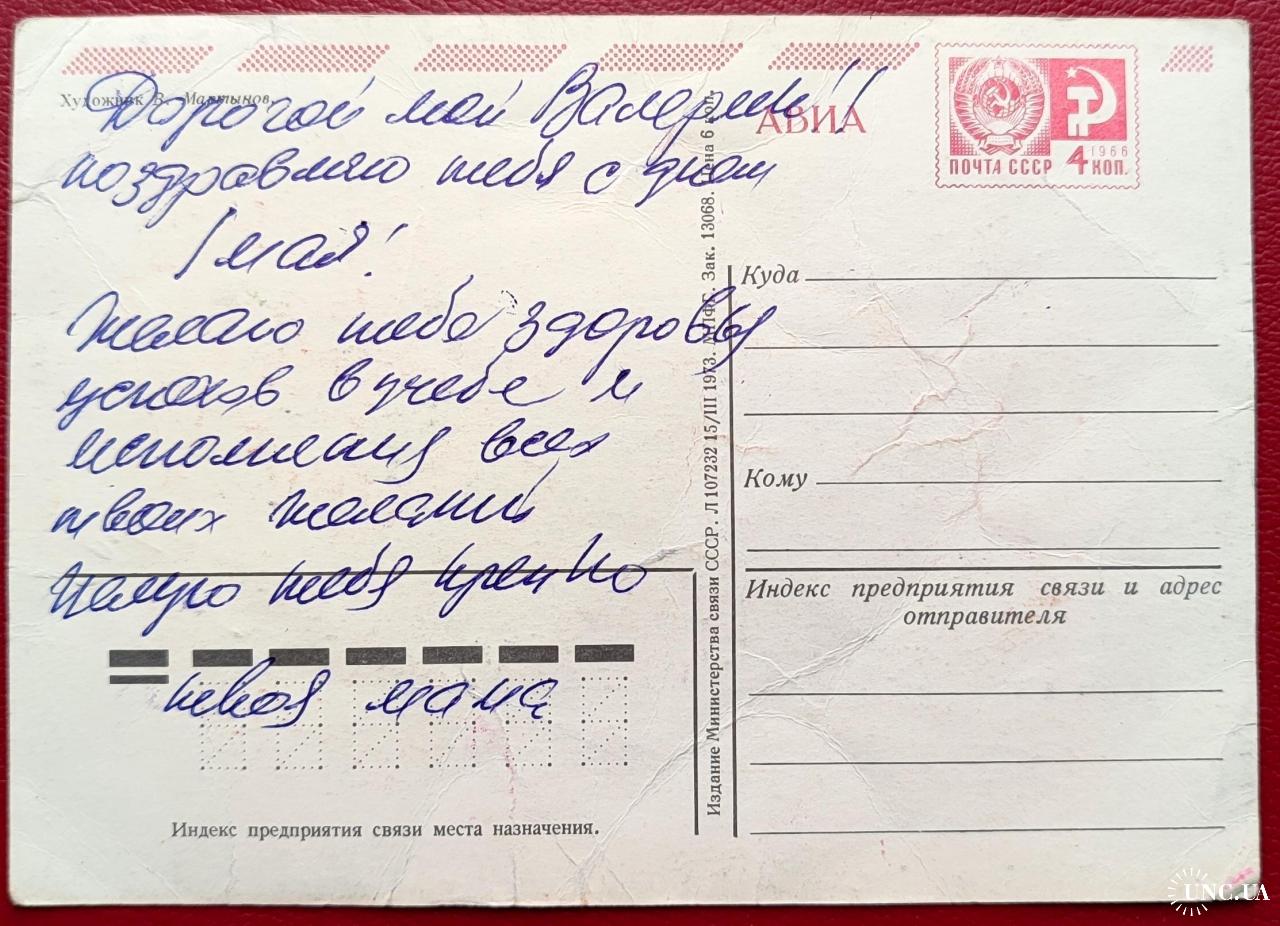 Художник В. Мартынов.
Дорогой мой Валерий!!
поздравляю тебя с днем
1 мая!
Желаю тебе здоровья
успехов в учебе и
исполнения всех
твоих желаний
Целую тебя крепко
твоя мама
Индекс предприятия связи места назначения.
Издание Министерства связи СССР. Л 107232 15/III 1973. МПФГ. Зак. 13068. Цена 6 коп.
АВИА
ПОЧТА СССР 4 КОП.
1966
Куда
Кому
Индекс предприятия связи и адрес
отправителя
UNC.UA